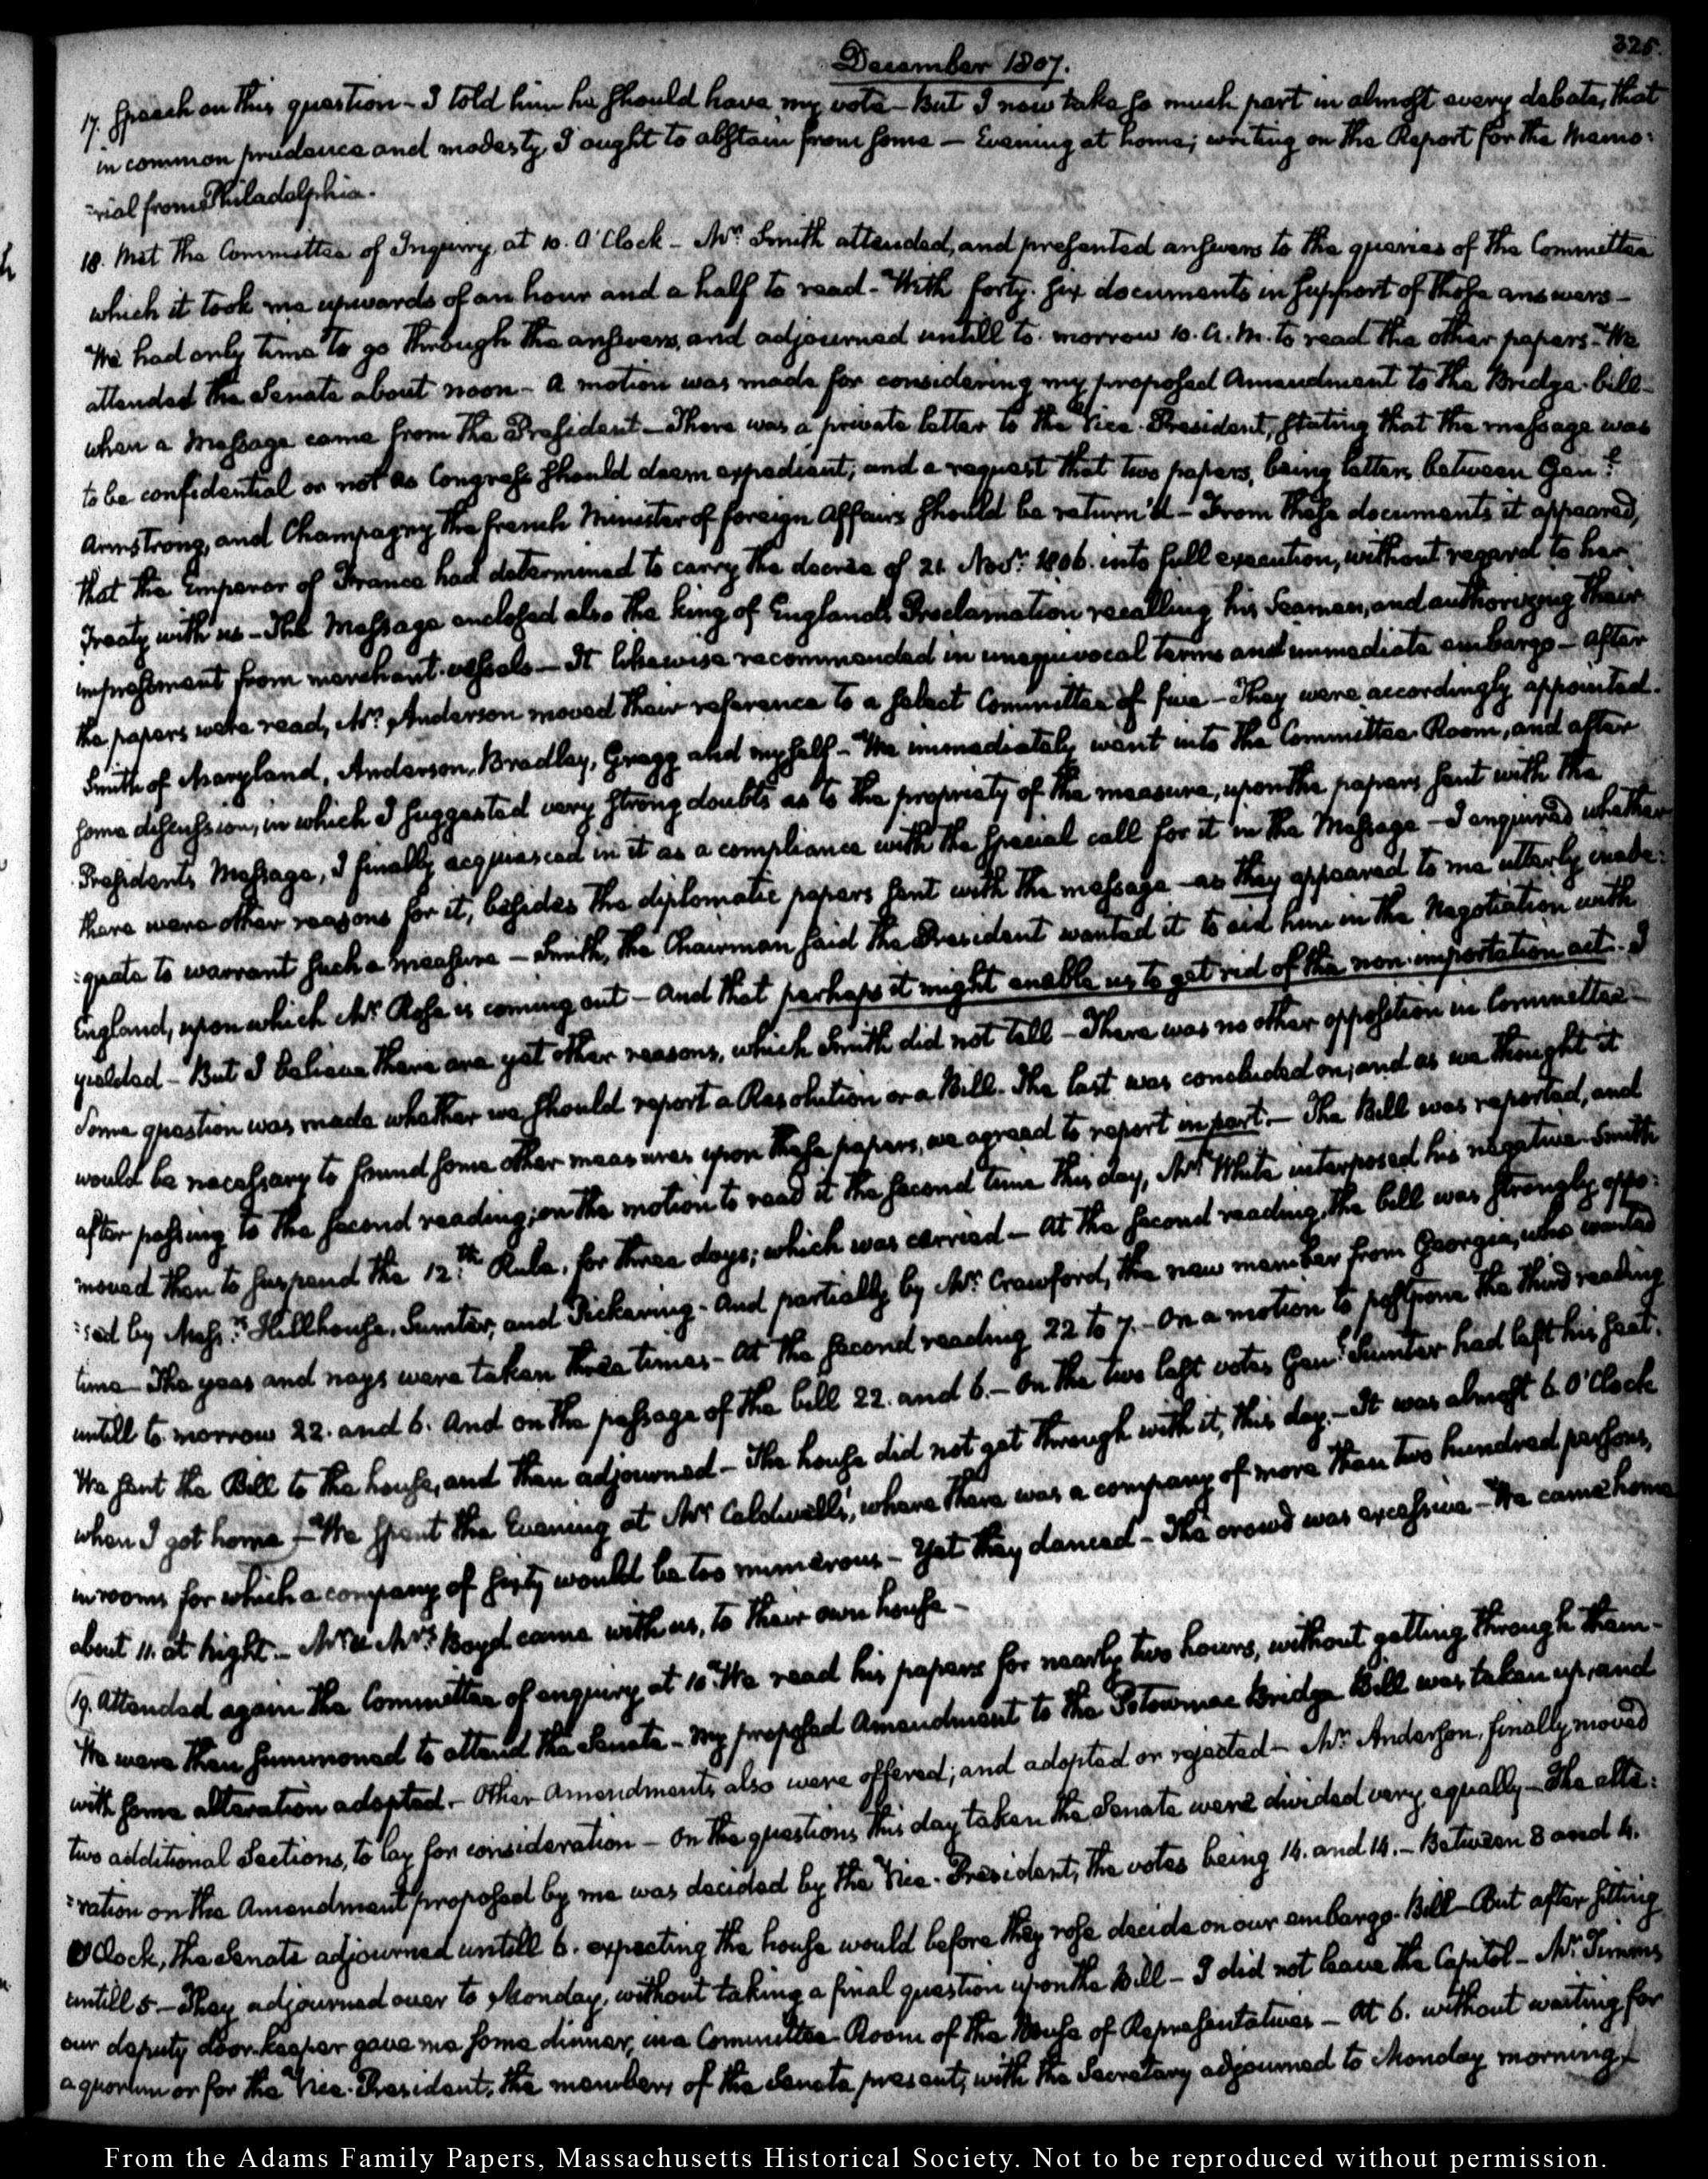 325.
December 1807.
17. Speech on this question - I told him he should have my vote - But I now take so much part in almost every debate, that
in common prudence and modesty I ought to abstain from some — Evening at home; writing on the Report for the Memo:
:rial from Philadelphia.
18. Met the Committee of Inquiry, at 10. O'Clock - Mr. Smith attended, and presented answers to the queries of the Committee
which it took me upwards of an hour and a half to read - With forty-six documents in support of those answers -
We had only time to go through the answers, and adjourned untill to-morrow 10. A.M. to read the other papers - We
attended the Senate about noon - A motion was made for considering my proposed Amendment to the Bridge-bill -
when a Message came from the President - There was a private letter to the Vice-President, stating that the message was
to be confidential or not as Congress should deem expedient; and a request that two papers, being letters between Genl.
Armstrong, and Champagny the french Minister of foreign Affairs should be return'd - From these documents it appeared,
that the Emperor of France had determined to carry the decree of 21. Novr. 1806. into full execution, without regard to her
Treaty with us - The Message enclosed also the king of England's Proclamation recalling his Seamen, and authorizing their
impressment from merchant-vessels - It likewise recommended in unequivocal terms and immediate embargo - After
the papers were read, Mr. Anderson moved their reference to a select Committee of five - They were accordingly appointed.
Smith of Maryland, Anderson, Bradley, Gregg and myself - We immediately went into the Committee-Room, and after
some discussion, in which I suggested very strong doubts as to the propriety of the measure, upon the papers sent with the
President's Message, I finally acquiesced in it as a compliance with the special call for it in the Message - I enquired whether
there were other reasons for it, besides the diplomatic papers sent with the message - as they appeared to me utterly inade:
:quate to warrant such a measure - Smith, the Chairman said the President wanted it to aid him in the Negotiation with
England, upon which Mr. Rose is coming out - And that perhaps it might enable us to get rid of the non-importation act. I
yielded - But I believe there are yet other reasons, which Smith did not tell - There was no other opposition in Committee -
Some question was made whether we should report a Resolution or a Bill. The last was concluded on; and as we thought it
would be necessary to found some other measures upon these papers, we agreed to report in part. - The Bill was reported, and
after passing to the second reading; on the motion to read it the second time this day, Mr. White interposed his negative. Smith
moved then to suspend the 12th. Rule, for three days; which was carried - At the second reading, the bill was strongly oppo:
:sed by Messrs. Hillhouse, Sumter, and Pickering - And partially by Mr. Crawford, the new member from Georgia, who wanted
time - The yeas and nays were taken three times - At the second reading 22 to 7. - On a motion to postpone the third reading
untill to-morrow 22. and 6. And on the passage of the bill 22. and 6. - On the two last votes Genl. Sumter had left his seat.
We sent the Bill to the house, and then adjourned - The house did not get through with it, this day. - It was almost 6. O'Clock
when I got home - We spent the Evening at Mr. Caldwell's, where there was a company of more than two hundred persons,
in rooms for which a company of sixty would be too numerous - Yet they danced - The crowd was excessive - We came home
about 11. at night. - Mr. & Mrs. Boyd came with us, to their own house -
19. Attended again the Committee of enquiry at 10. We read his papers for nearly two hours, without getting through them -
We were then summoned to attend the Senate - My proposed Amendment to the Potowmac Bridge Bill was taken up, and
with some alteration adopted. - Other Amendments also were offered; and adopted or rejected - Mr. Anderson, finally moved
two additional Sections, to lay for consideration - On the questions this day taken the Senate were divided very equally - The alte:
:ration on the Amendment proposed by me was decided by the Vice-President, the votes being 14. and 14. - Between 3 and 4.
O'Clock, the Senate adjourned untill 6. expecting the house would before they rose decide on our embargo-Bill - But after sitting
untill 5 - They adjourned over to Monday, without taking a final question upon the Bill - I did not leave the Capitol - Mr. Timms
our deputy door-keeper gave me some dinner, in a Committee-Room of the House of Representatives - At 6. without waiting for
a quorum or for the Vice-President, the members of the Senate present, with the Secretary adjourned to Monday morning -
From the Adams Family Papers, Massachusetts Historical Society. Not to be reproduced without permission.